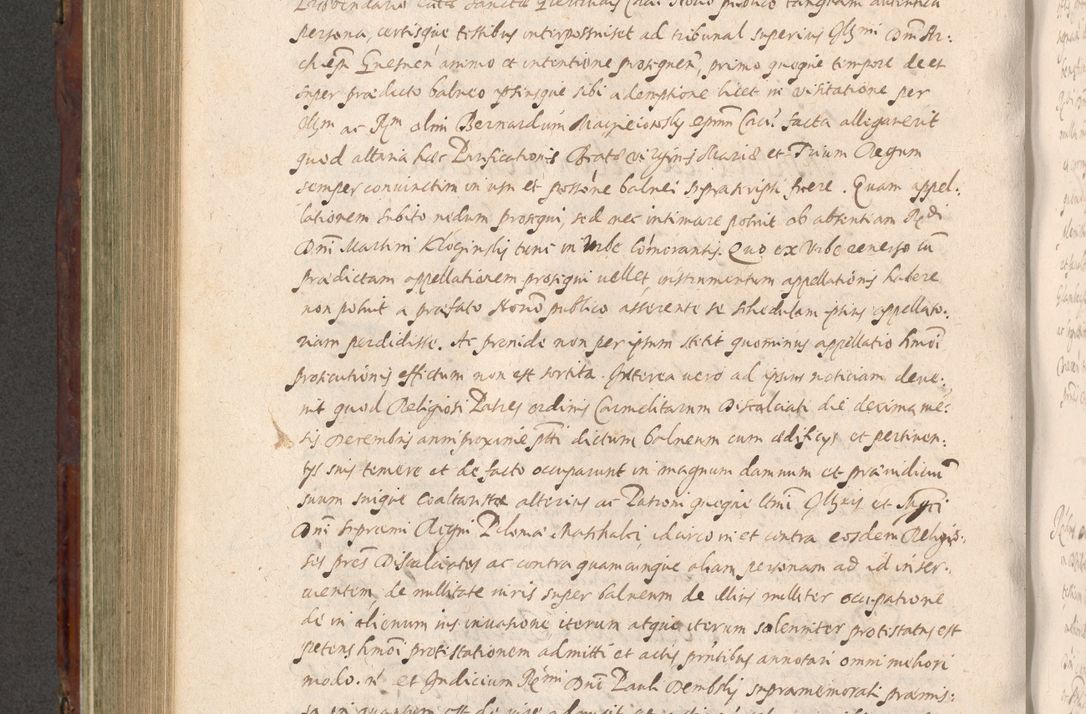 persona, certisque testibus interposuisset ad tribunal superius Illmi Dni Ar:
chiepi Gnesnen animo et intentione prosequen, primo quoque tempore de et
super praedicto balneo ipsiusque sibi ademptione licet in visitatione per
Illm ac Rm olim Bernardum Macieiowsky epum Crac. facta allegaverit
quod altaria haec Purificationis Beatae Virginis Mariae et Trium Regum
semper coniunctim in usu et possone balnei suprascripti fuere. Quam appel:
lationem subito nedum prosequi, sed nec intimare potuit ob absentiam Rdi
Dni Martini Kłoczinsky tunc in Urbe comorantis. Quo ex Urbe reverso cu
praedictam appellationem prosequi vellet, instrumentum appellationis habere
non potuit a praefato Norio publico asserente se schedulam ipsius appellato:
riam perdidisse. Ac proinde non per ipsum stetit quominus appellatio hmoi
prosecutionis effectum non est sortita. Interea vero ad ipsius noticiam deve:
nit quod Religiosi Patres ordinis Carmelitarum Discalceati die decima me:
sis Decembris anni proxime pti dictum balneum cum aedificys et pertinen:
tys suis temere et de facto occuparunt in magnum damnum et praeiudiciu
suum suique Coaltaristae alterius ac Patroni quoque Illmi et Mgci
Dni supremi Regni Poloniae Marshalci, idcirco in et contra eosdem Religio:
sos pres Discalceatos ac contra quamcunque aliam personam ad id inter:
venientem, de nullitate iuris super balneum de illius nulliter occupatione
de in alienum ius invasione, iterum atque iterum solenniter protestatus est
petens hmoi protestationem admitti et actis pntibus annotari omni meliori
modo. ri et Iudicium Rmi Dni Pauli Dembsky supramemorati praemis: